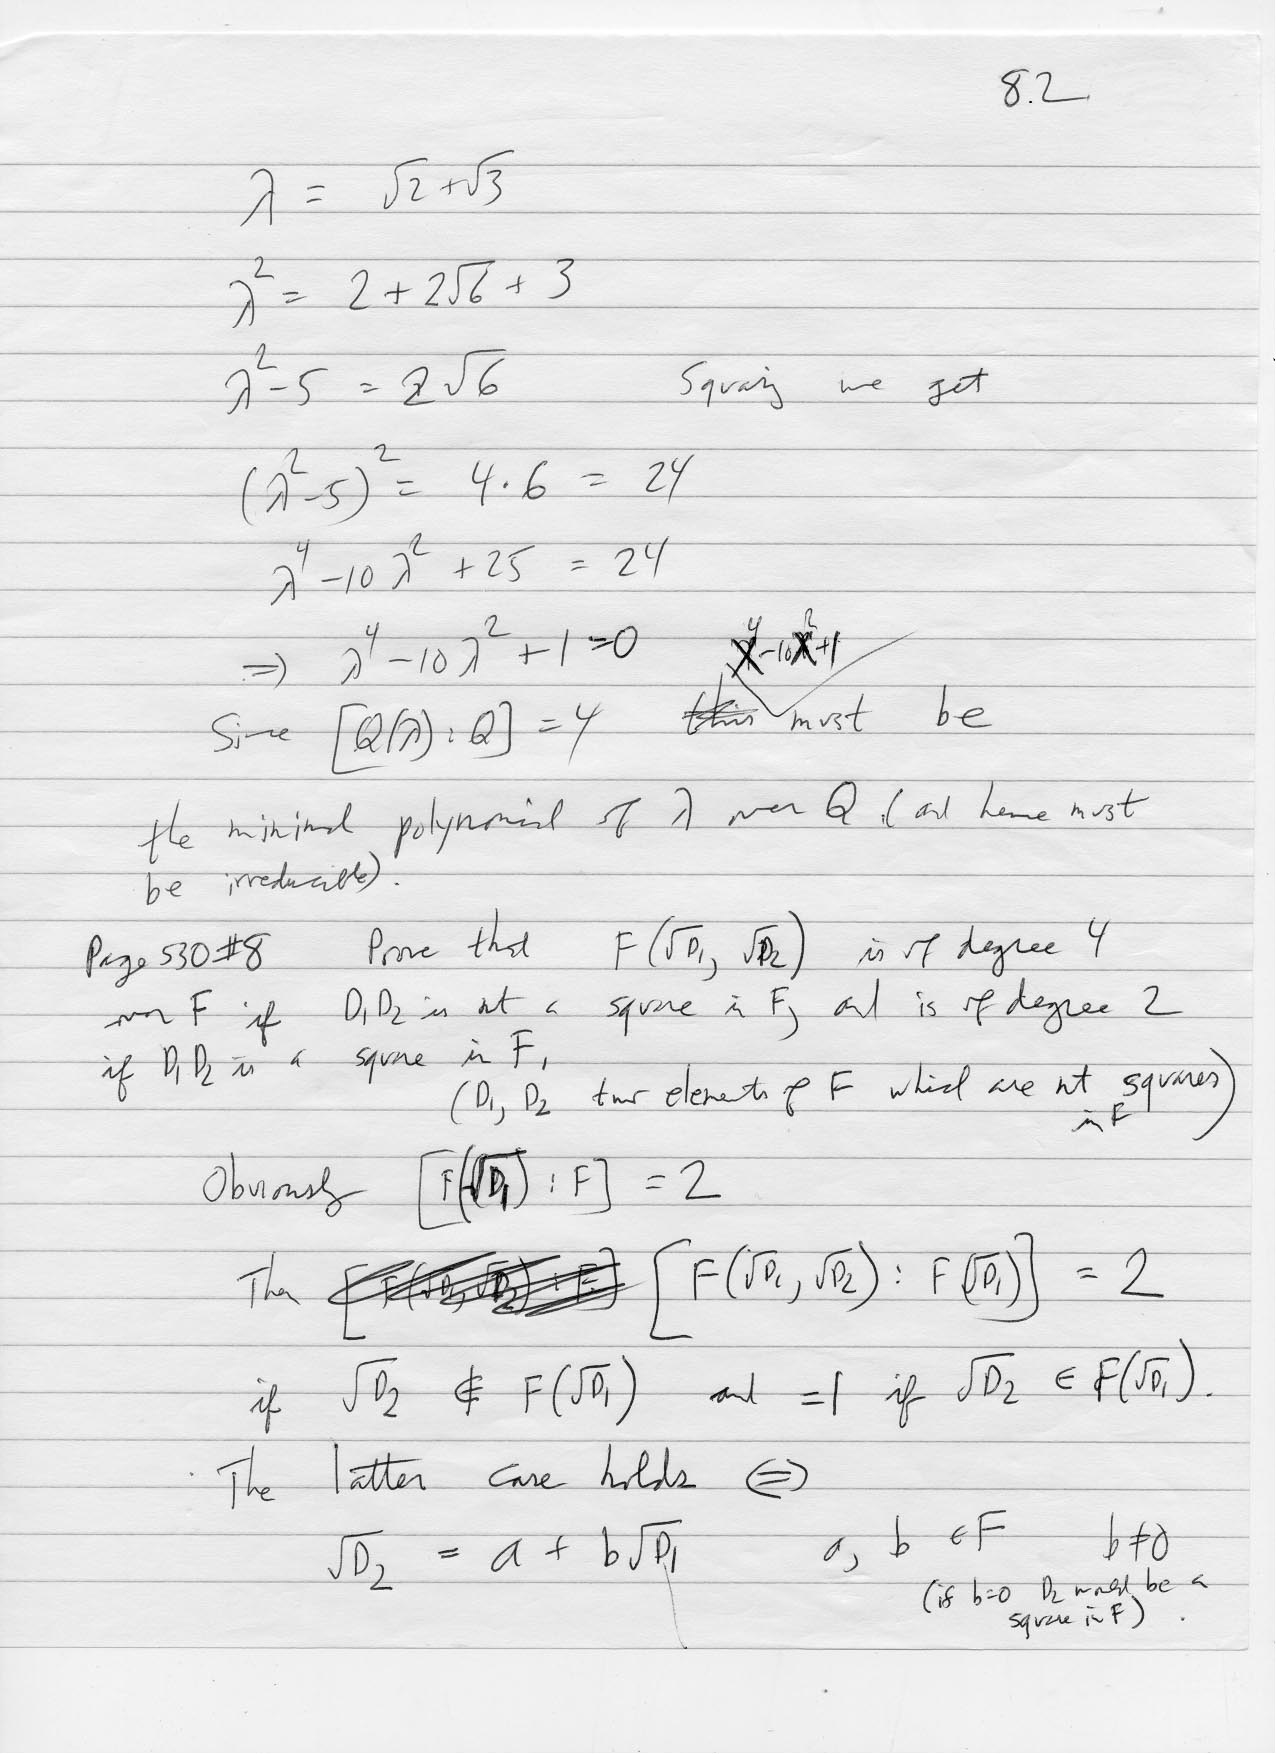 8.2
λ = √2+√3
λ² = 2 + 2√6 + 3
λ²-5 = 2√6 Squaring we get
(λ²-5)² = 4·6 = 24
λ⁴-10λ²+25 = 24
⇒ λ⁴-10λ²+1=0 X⁴-10X²+1
Since [Q(λ):Q] = 4 must be
the minimal polynomial of λ over Q (and hence must
be irreducible).
Page 530 #8 Prove that F(√D₁, √D₂) is of degree 4
over F if D₁D₂ is not a square in F, and is of degree 2
if D₁D₂ is a square in F.
(D₁, D₂ two elements of F which are not squares
in F)
Obviously [F(√D₁):F] = 2
Then [F(√D₁,√D₂): F(√D₁)] = 2
if √D₂ ∉ F(√D₁) and =1 if √D₂ ∈ F(√D₁).
The latter case holds ⇔
√D₂ = a + b√D₁ a, b ∈ F b≠0
(if b=0 D₂ would be a
square in F).